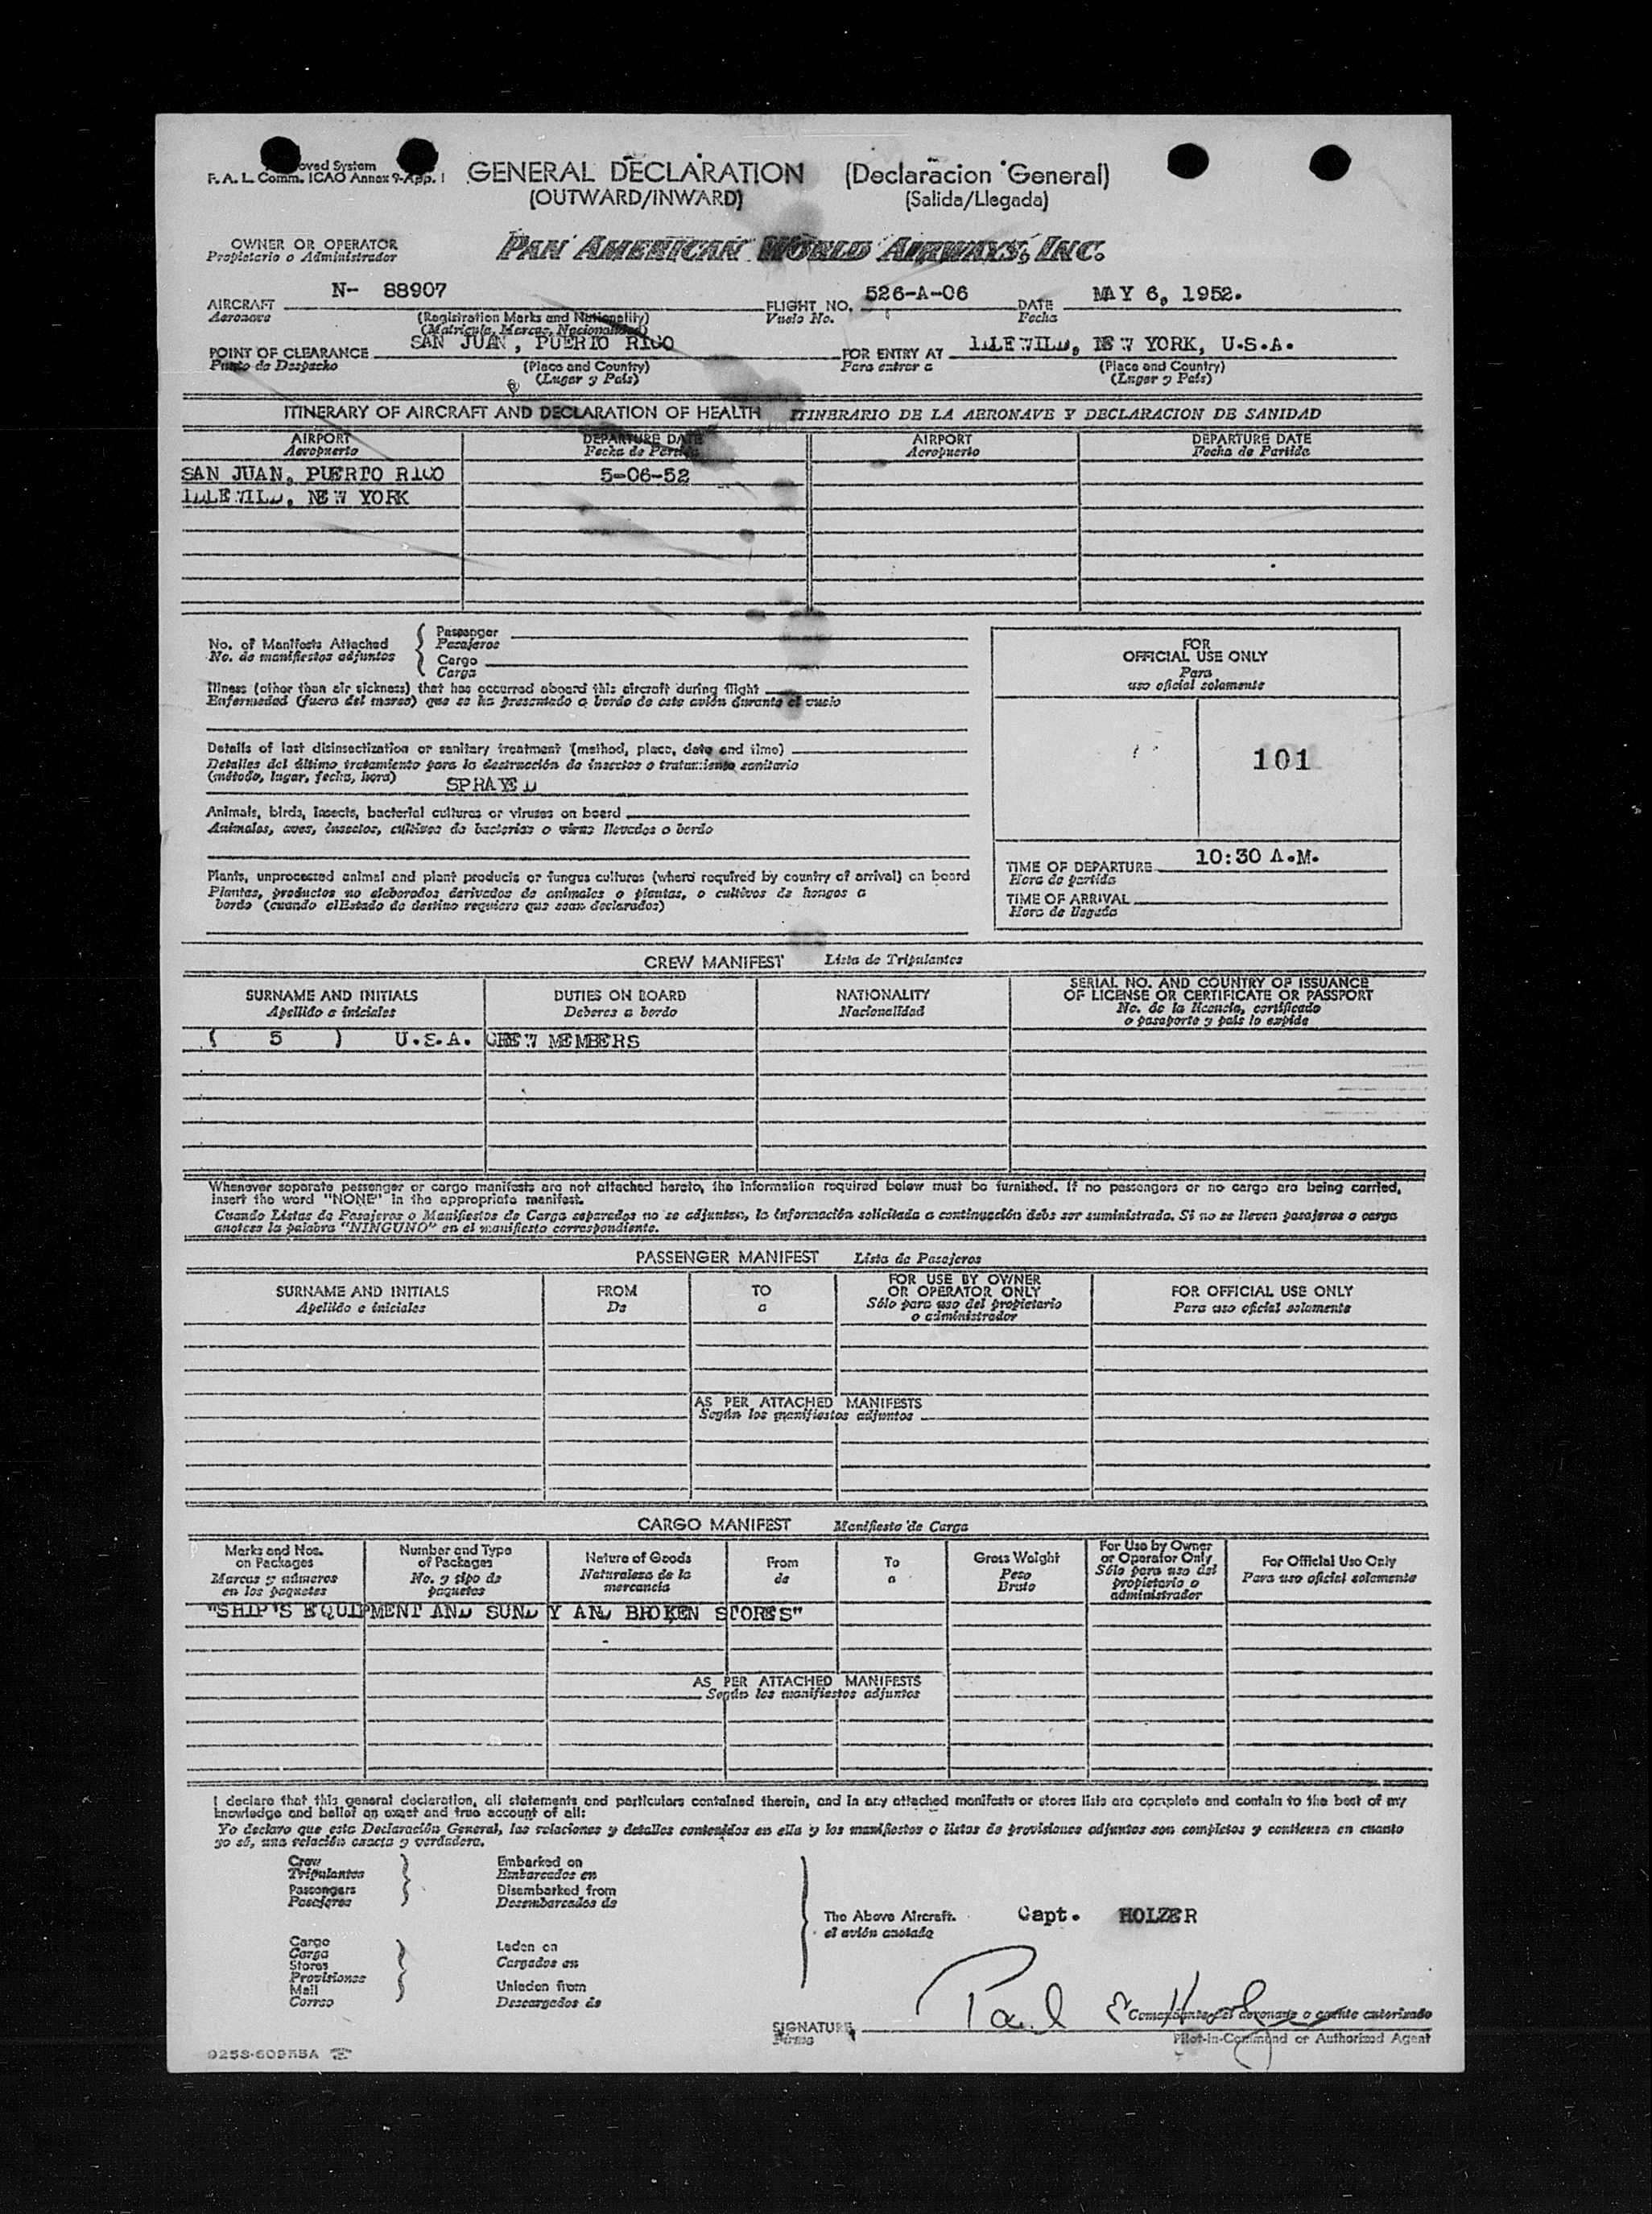 oved System
F. A. L. Comm. ICAO Annex 9-App. 1
GENERAL DECLARATION (Declaracion General)
(OUTWARD/INWARD) (Salida/Llegada)
OWNER OR OPERATOR
Propietario o Administrador
PAN AMERICAN WORLD AIRWAYS, INC.
AIRCRAFT N- 88907 FLIGHT NO. 526-A-06 DATE MAY 6, 1952.
Aeronave (Registration Marks and Nationality) Vuelo No. Fecha
(Matricula, Marcas, Nacionalidad)
POINT OF CLEARANCE SAN JUAN, PUERTO RICO FOR ENTRY AT IDLEWILD, NEW YORK, U.S.A.
Punto de Despacho (Place and Country) Para entrar a (Place and Country)
(Lugar y País) (Lugar y País)
ITINERARY OF AIRCRAFT AND DECLARATION OF HEALTH ITINERARIO DE LA AERONAVE Y DECLARACION DE SANIDAD
AIRPORT DEPARTURE DATE AIRPORT DEPARTURE DATE
Aeropuerto Fecha de Partida Aeropuerto Fecha de Partida
SAN JUAN, PUERTO RICO 5-06-52
IDLEWILD, NEW YORK
No. of Manifests Attached
No. de manifiestos adjuntos
Passenger
Pasajeros
Cargo
Carga
Illness (other than air sickness) that has occurred aboard this aircraft during flight
Enfermedad (fuera del mareo) que se ha presentado a bordo de este avión durante el vuelo
Details of last disinsectization or sanitary treatment (method, place, date and time)
Detalles del último tratamiento para la destrucción de insectos o tratamiento sanitario
(método, lugar, fecha, hora) SPRAYED
Animals, birds, insects, bacterial cultures or viruses on board
Animales, aves, insectos, cultivos de bacterias o virus llevados a bordo
Plants, unprocessed animal and plant products or fungus cultures (where required by country of arrival) on board
Plantas, productos no elaborados derivados de animales o plantas, o cultivos de hongos a
bordo (cuando el Estado de destino requiera que sean declarados)
FOR
OFFICIAL USE ONLY
Para
uso oficial solamente
101
TIME OF DEPARTURE 10:30 A.M.
Hora de partida
TIME OF ARRIVAL
Hora de llegada
CREW MANIFEST Lista de Tripulantes
SURNAME AND INITIALS DUTIES ON BOARD NATIONALITY SERIAL NO. AND COUNTRY OF ISSUANCE
OF LICENSE OR CERTIFICATE OR PASSPORT
Apellido e iniciales Deberes a bordo Nacionalidad No. de la licencia, certificado
o pasaporte y país lo expide
( 5 ) U.S.A. CREW MEMBERS
Whenever separate passenger or cargo manifests are not attached hereto, the information required below must be furnished. If no passengers or no cargo are being carried,
insert the word "NONE" in the appropriate manifest.
Cuando Listas de Pasajeros o Manifiestos de Carga separados no se adjunten, la información solicitada a continuación debe ser suministrada. Si no se lleven pasajeros o carga
anotese la palabra "NINGUNO" en el manifiesto correspondiente.
PASSENGER MANIFEST Lista de Pasajeros
SURNAME AND INITIALS FROM TO FOR USE BY OWNER
OR OPERATOR ONLY FOR OFFICIAL USE ONLY
Apellido e iniciales De a Sólo para uso del propietario
o administrador Para uso oficial solamente
AS PER ATTACHED MANIFESTS
Según los manifiestos adjuntos
CARGO MANIFEST Manifiesto de Carga
Marks and Nos.
on Packages
Marcas y números
en los paquetes
Number and Type
of Packages
No. y tipo de
paquetes
Nature of Goods
Naturaleza de la
mercancia
From
de
To
a
Gross Weight
Peso
Bruto
For Use by Owner
or Operator Only
Sólo para uso del
propietario o
administrador
For Official Use Only
Para uso oficial solamente
"SHIP'S EQUIPMENT AND SUND Y AND BROKEN STORES"
AS PER ATTACHED MANIFESTS
Según los manifiestos adjuntos
I declare that this general declaration, all statements and particulars contained therein, and in any attached manifests or stores lists are complete and contain to the best of my
knowledge and belief an exact and true account of all:
Yo declaro que esta Declaración General, las relaciones y detalles contenidos en ella y los manifiestos o listas de provisiones adjuntos son completos y contienen en cuanto
yo sé, una relación exacta y verdadera.
Crew
Tripulantes
Passengers
Pasajeros
Embarked on
Embarcados en
Disembarked from
Desembarcados de
Cargo
Carga
Stores
Provisiones
Mail
Correo
Laden on
Cargados en
Unladen from
Descargados de
The Above Aircraft.
el avión anotado
Capt. HOLZER
SIGNATURE
Firma
Comandante del aeronave o agente autorizado
Pilot-in-Command or Authorized Agent